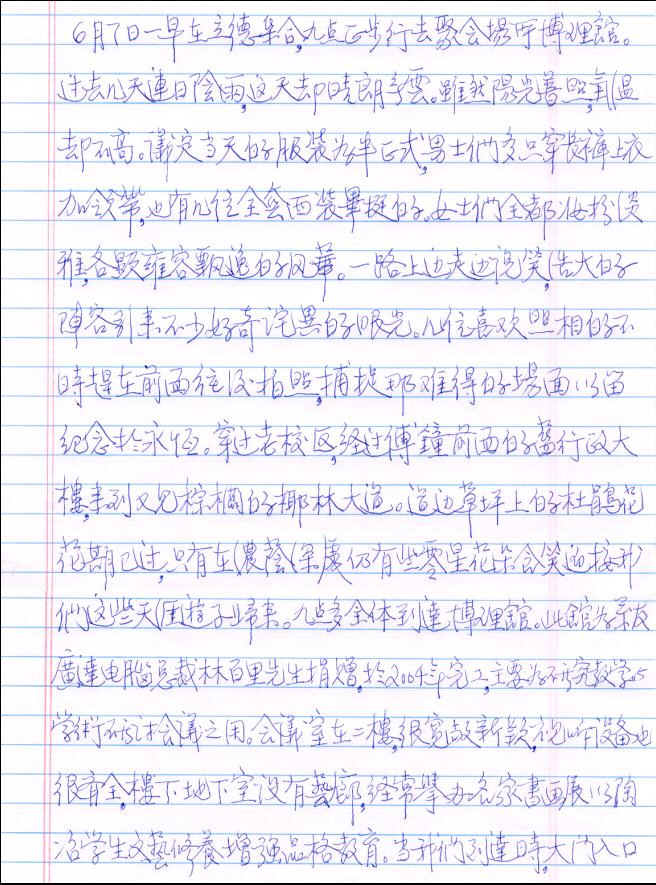 6月7日一早在立德集合,九点正步行去聚会場所博理館。
过去几天連日陰雨,这天却晴朗多雲。雖然陽光普照,氣温
却不高。議定当天的服装為半正式,男士們多只穿長褲上衣
加領帶,也有几位全套西装畢挺的。女士們全都妝扮淡
雅,各顯雍容飄逸的风華。一路上边走边说笑,浩大的
陣容引来不少好奇诧異的眼光。几位喜欢照相的不
時趕在前面往后拍照,捕捉那难得的場面以留
纪念於永恆。穿过老校区,经过傅鐘前面的舊行政大
樓,来到又见棕櫚的椰林大道。道边草坪上的杜鹃花
花期已过,只有在濃蔭深處仍有些零星花朵含笑迎接我
們这些天涯遊子歸来。九点多全体到達博理館。此館为系友
廣達电腦总裁林百里先生捐赠,於2004年完工,主要为研究教学与
学術研讨会議之用。会議室在二樓,很宽敞新颖,视听设备也
很齐全。樓下地下室设有藝廊,经常舉办名家書画展以陶
冶学生文藝修養增强品格教育。当我們到達時,大门入口